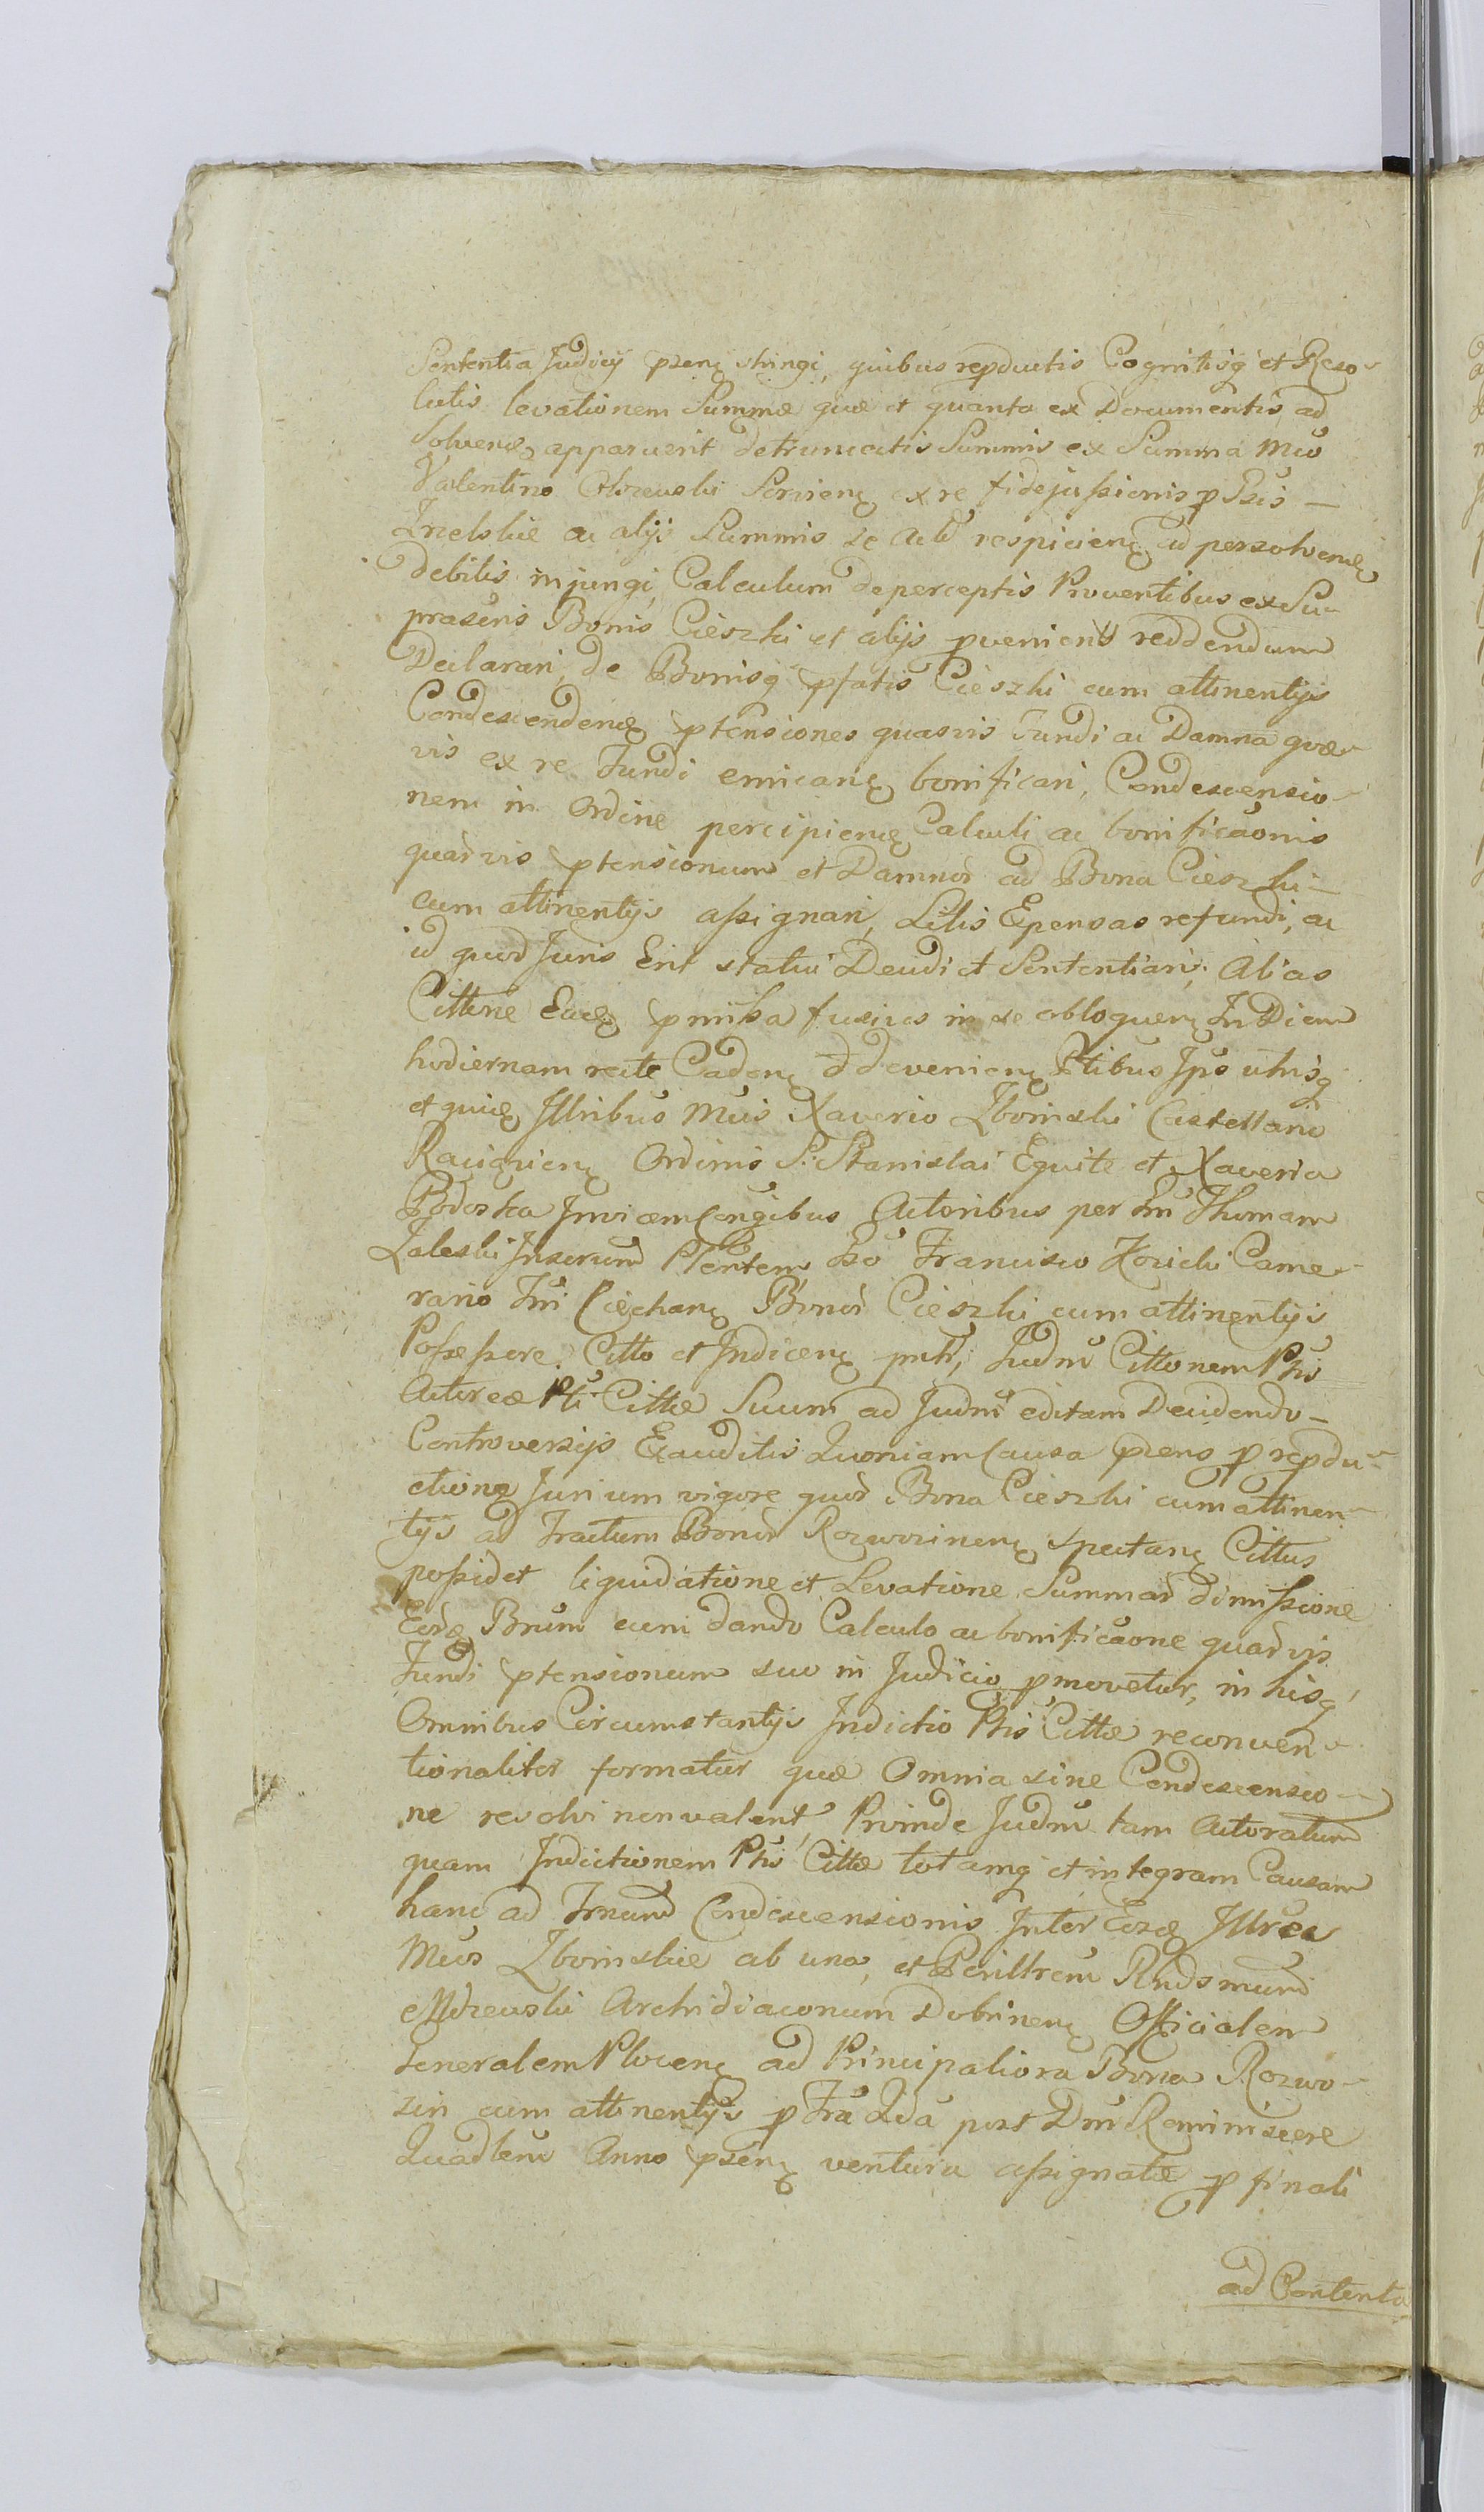 Sententia Judicij psenę stringi, quibus repductis Cognitisq́ et Reso-
lutis levationem Summæ quæ et quanta ex Documentis ad
Solvenę apparuerit detruncatis Summis ex Summa Mco
Valentino Servienę ex re fidejussionis p Psis —
ac alijs Summis se Actt respicienę ad persolvenę
debitis injungi, Calculum de perceptis Proventibus ex Su-
praseris Bonis Cieszki et alijs pvenients reddendum
Declarari, de Bonisq́ pfatis Cieszki cum attinentijs
Condescendenę ptensiones quasvis Fundi ac Damna quæ-
vis ex re Fundi emicanę bonificari, Condescensio-
nem in Ordine percipienę Calculi ac bonificãonis
quarvis ptensionum et Damnor ad Bona Cieszki —
cum attinentijs assignari, Litis Expensas refundi, ac
id quod Juris Erit statui Decidi et Sententiari. Alias
Cittne Eaeę pmissa fusius in se obloquenę In Diem
hodiernam recte Cadenę d devenienę Ptibus Ipis utrisq́
et quidę Illribus Mcis Xaverio Zboinski Castellano
Raciązienę Ordinis S. Stanislai Equite et Xaveria
Podoska Invicem Congibus Actoribus per Thomam
Zaleski Inserum Pltentem Gso Francisco Kozicki Came-
rario Tri Ciechanę Bonor Cieszki cum attinentijs
Possessore Citto et Indicenę Judm Cittonem Ptis
Actoreæ Pti Cittæ Suum ad Judm editam Decidendo —
Controversijs Exauditis Quoniam Causa psens p repdu-
ctione Jurium vigore quor Bona Cieszki cum attinen-
tijs ad Tractum Bonor Rozwozinenę spectanę Cittus
possidet liquidatione et Levatione Summar dimissione
Eorę Bnrum cum dando Calculo ac bonificãone quarvis
Fundi ptensionum suo in Judicio pmovetur, in hisq́
Omnibus Circumstantijs Indictio Ptis Cittæ reconven-
tionaliter formatur quæ Omnia sine Condescensio-
ne resolvi non valent Proinde Judm tam Actoratum
quam Indictionem Ptis Cittæ totamq́ et integram Causam
hanc ad Trnum Condescensionis Inter Eosę Illres
Mcos Zboinskie ab una, et Perillrem Rndsmum
Archidiaconum Dobrinenę Officialem
Generalem Plocenę ad Principaliora Bona Rozwo-
zin cum attinentijs p Fra 2da post Dm Reminiscere
Quadlem Anno psenę ventura assignatæ p finali
ad Contenta